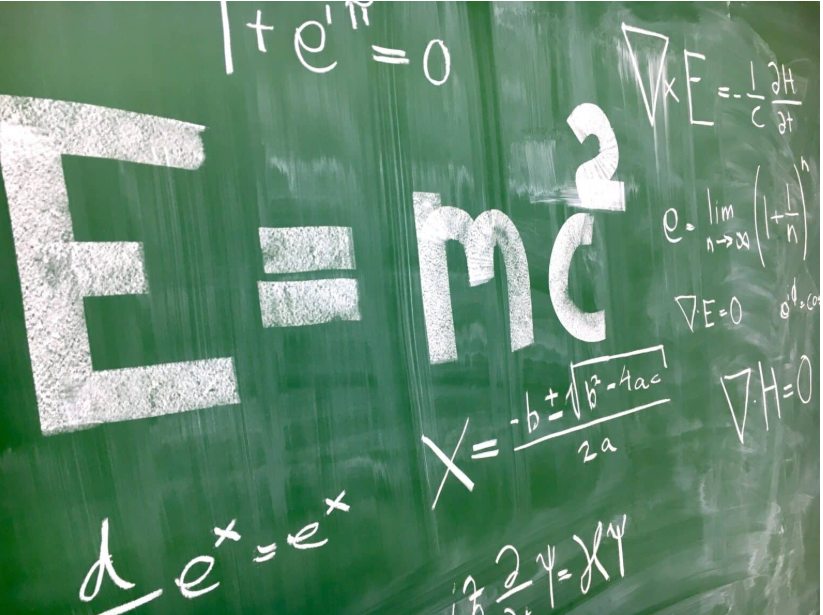 1 + e^iπ = 0
∇ × E = -1/c ∂H/∂t
E = mc²
e = lim n→∞ (1 + 1/n)^n
∇·E = 0
∇·H = 0
x = -b ± √b² - 4ac / 2a
d e^x = e^x
iħ ∂/∂t ψ = Hψ